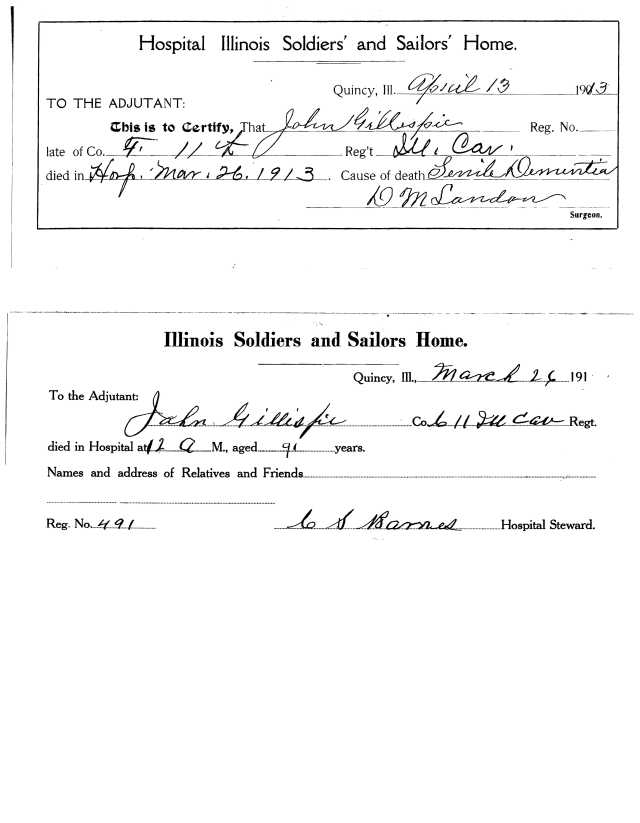 Hospital Illinois Soldiers' and Sailors' Home.
Quincy, Ill. April 13 1913
TO THE ADJUTANT:
This is to Certify, That John Gillespie Reg. No.
late of Co. G. 11th Reg't Ill. Cav.
died in Hosp. Mar. 26. 1913. Cause of death Senile Dementia
D M Landon
Surgeon.
Illinois Soldiers and Sailors Home.
Quincy, Ill., March 26 191
To the Adjutant:
John Gillispie Co 11 Ill Cav Regt.
died in Hospital at 12 A M., aged 91 years.
Names and address of Relatives and Friends
Reg. No. 491 C S Barnes Hospital Steward.